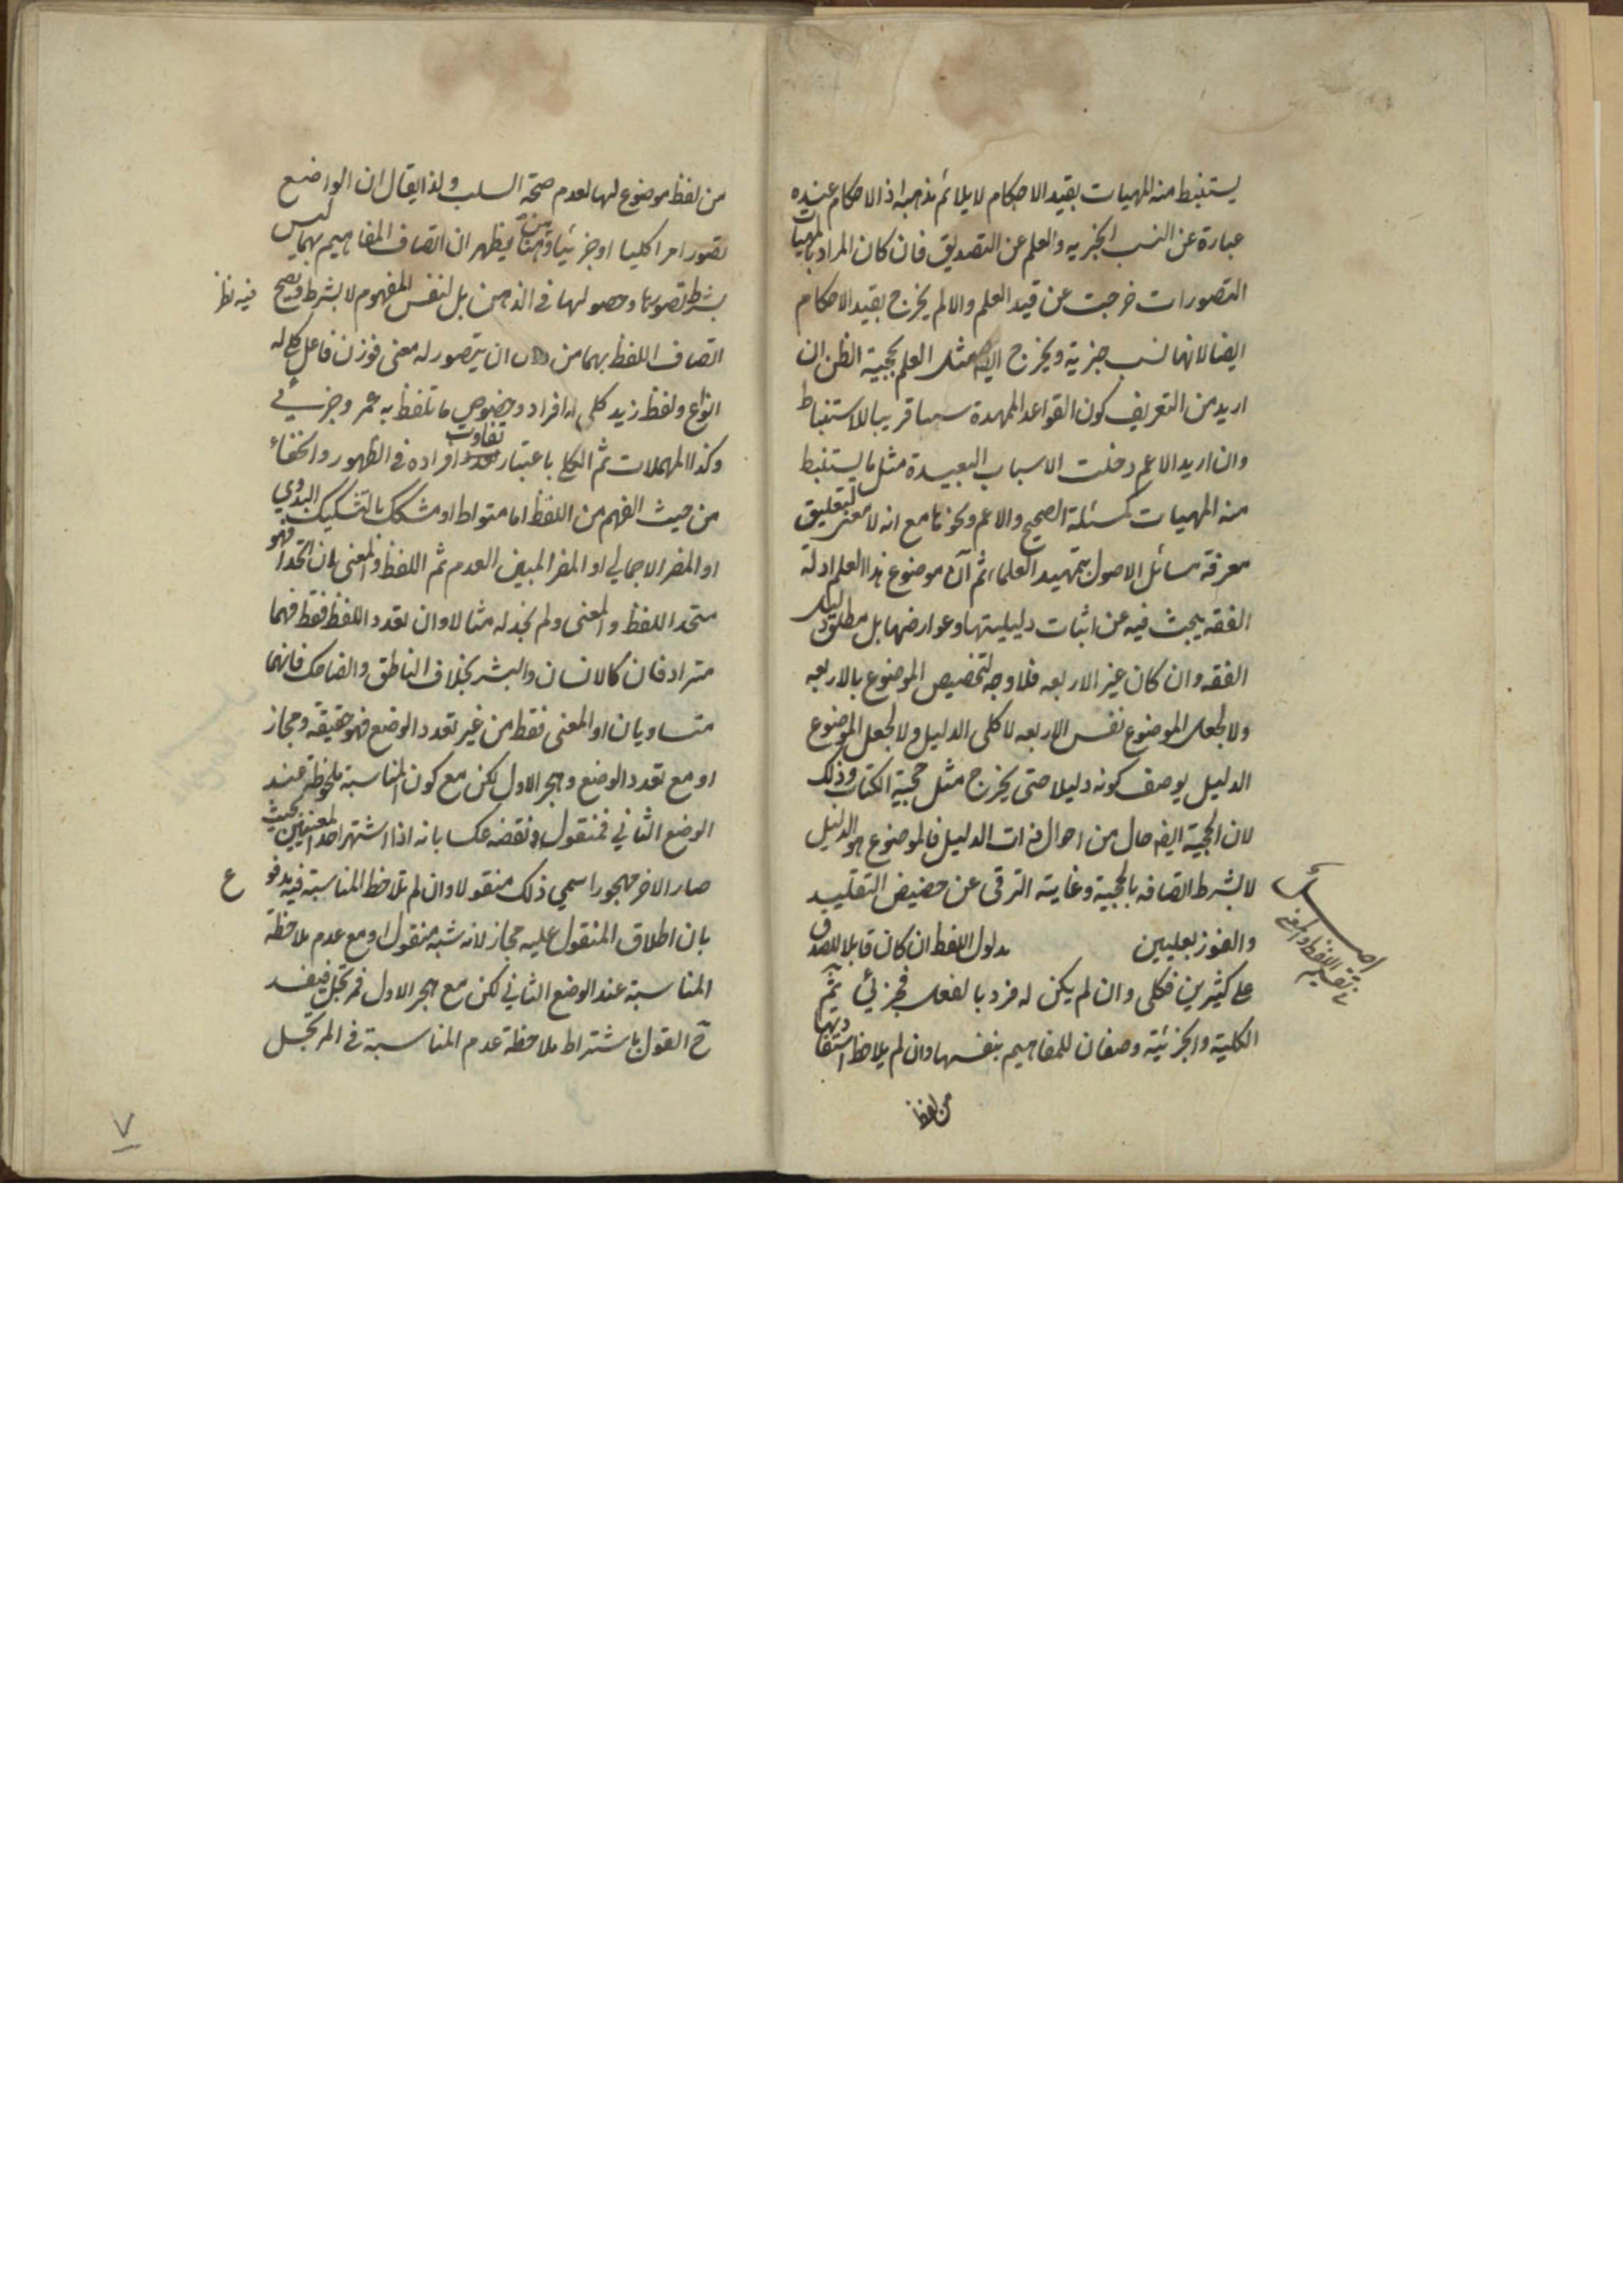 يستنبط منه المهيات بقيد الاحكام لا يلائم مذهبه اذ الاحكام عنده
عبارة عن النسب الجزيه والعلم عن التصديق فان كان المراد بالمهيات
التصورات خرجت عن قيد العلم والا لم يخرج بقيد الاحكام
ايضا لانها نسب جزية ويخرج ايضه مثل العلم بحجية الظن ان
اريد من التعريف كون القواعد الممهدة سببا قريبا للاستنباط
وان اريد الاعم دخلت الاسباب البعيدة مثل ما يستنبط
منه المهيات كمسئلة الصحيح والاعم ونحوها مع انه لا معنى لتعليق
معرفة مسائل الاصول بتمهيد العلماء ثم ان موضوع هذا العلم ادلة
الفقه يبحث فيه عن اثبات دليليتها وعوارضها بل مطلق دليل
الفقه وان كان غير الاربعه فلا وجه لتخصيص الموضوع بالاربعه
ولا لجعل الموضوع نفس الاربعه لا كلى الدليل ولا لجعل الموضوع
الدليل بوصف كونه دليلا حتى يخرج مثل حجية الكتاب وذلك
لان الحجية ايضه حال من احوال ذات الدليل فالموضوع هو الدليل
لا بشرط اتصافه بالحجية وغايته الترقى عن حضيض التقليد
والفوز بعليين مدلول اللفظ ان كان قابلا للصدق
على كثيرين فكلى وان لم يكن له فرد بالفعل فجزئي ثم
الكلية والجزئية وصفان للمفاهيم بنفسها وان لم يلاحظ استفادتها
من لفظ
من لفظ موضوع لها لعدم صحة السلب ولذا يقال ان الواضع
تصور امرا كليا او جزئيا ومن هنا يظهر ان اتصاف المفاهيم بهما ليس
بشرط تصورها وحصولها في الذهن بل لنفس المفهوم لا بشرط ويصح
فيه نظر
اتصاف اللفظ بهما من دون ان يتصور له معنى فوزن فاعل كلى له
انواع ولفظ زيد كلى له افراد وخصوص ما تلفظ به عمر وجزئي
وكذا المهملات ثم الكلى باعتبار تفاوت افراده في الظهور والخفاء
من حيث الفهم من اللفظ اما متواط او مشكك بالتشكيك البدوي
او المضر الاجمالي او المضر المبين العدم ثم اللفظ والمعنى ان اتحدا فهو
متحد اللفظ والمعنى ولم نجد له مثالا وان تعدد اللفظ فقط فهما
مترادفان كالانسان والبشر بخلاف الناطق والضاحك فانهما
متساويان او المعنى فقط من غير تعدد الوضع فهو حقيقة ومجاز
او مع تعدد الوضع وهجر الاول لكن مع كون المناسبة ملحوظة عند
الوضع الثاني فمنقول ونقضه عكسا بانه اذا اشتهر احد المعنيين بحيث
صار الاخر مهجورا سمي ذلك منقولا وان لم تلاحظ المناسبة فيه مدفوع
بان اطلاق المنقول عليه مجاز لانه شبه منقول او مع عدم ملاحظة
المناسبة عند الوضع الثاني لكن مع هجر الاول فمرتجل فيفسد
ح القول باشتراط ملاحظة عدم المناسبة في المرتجل
٧